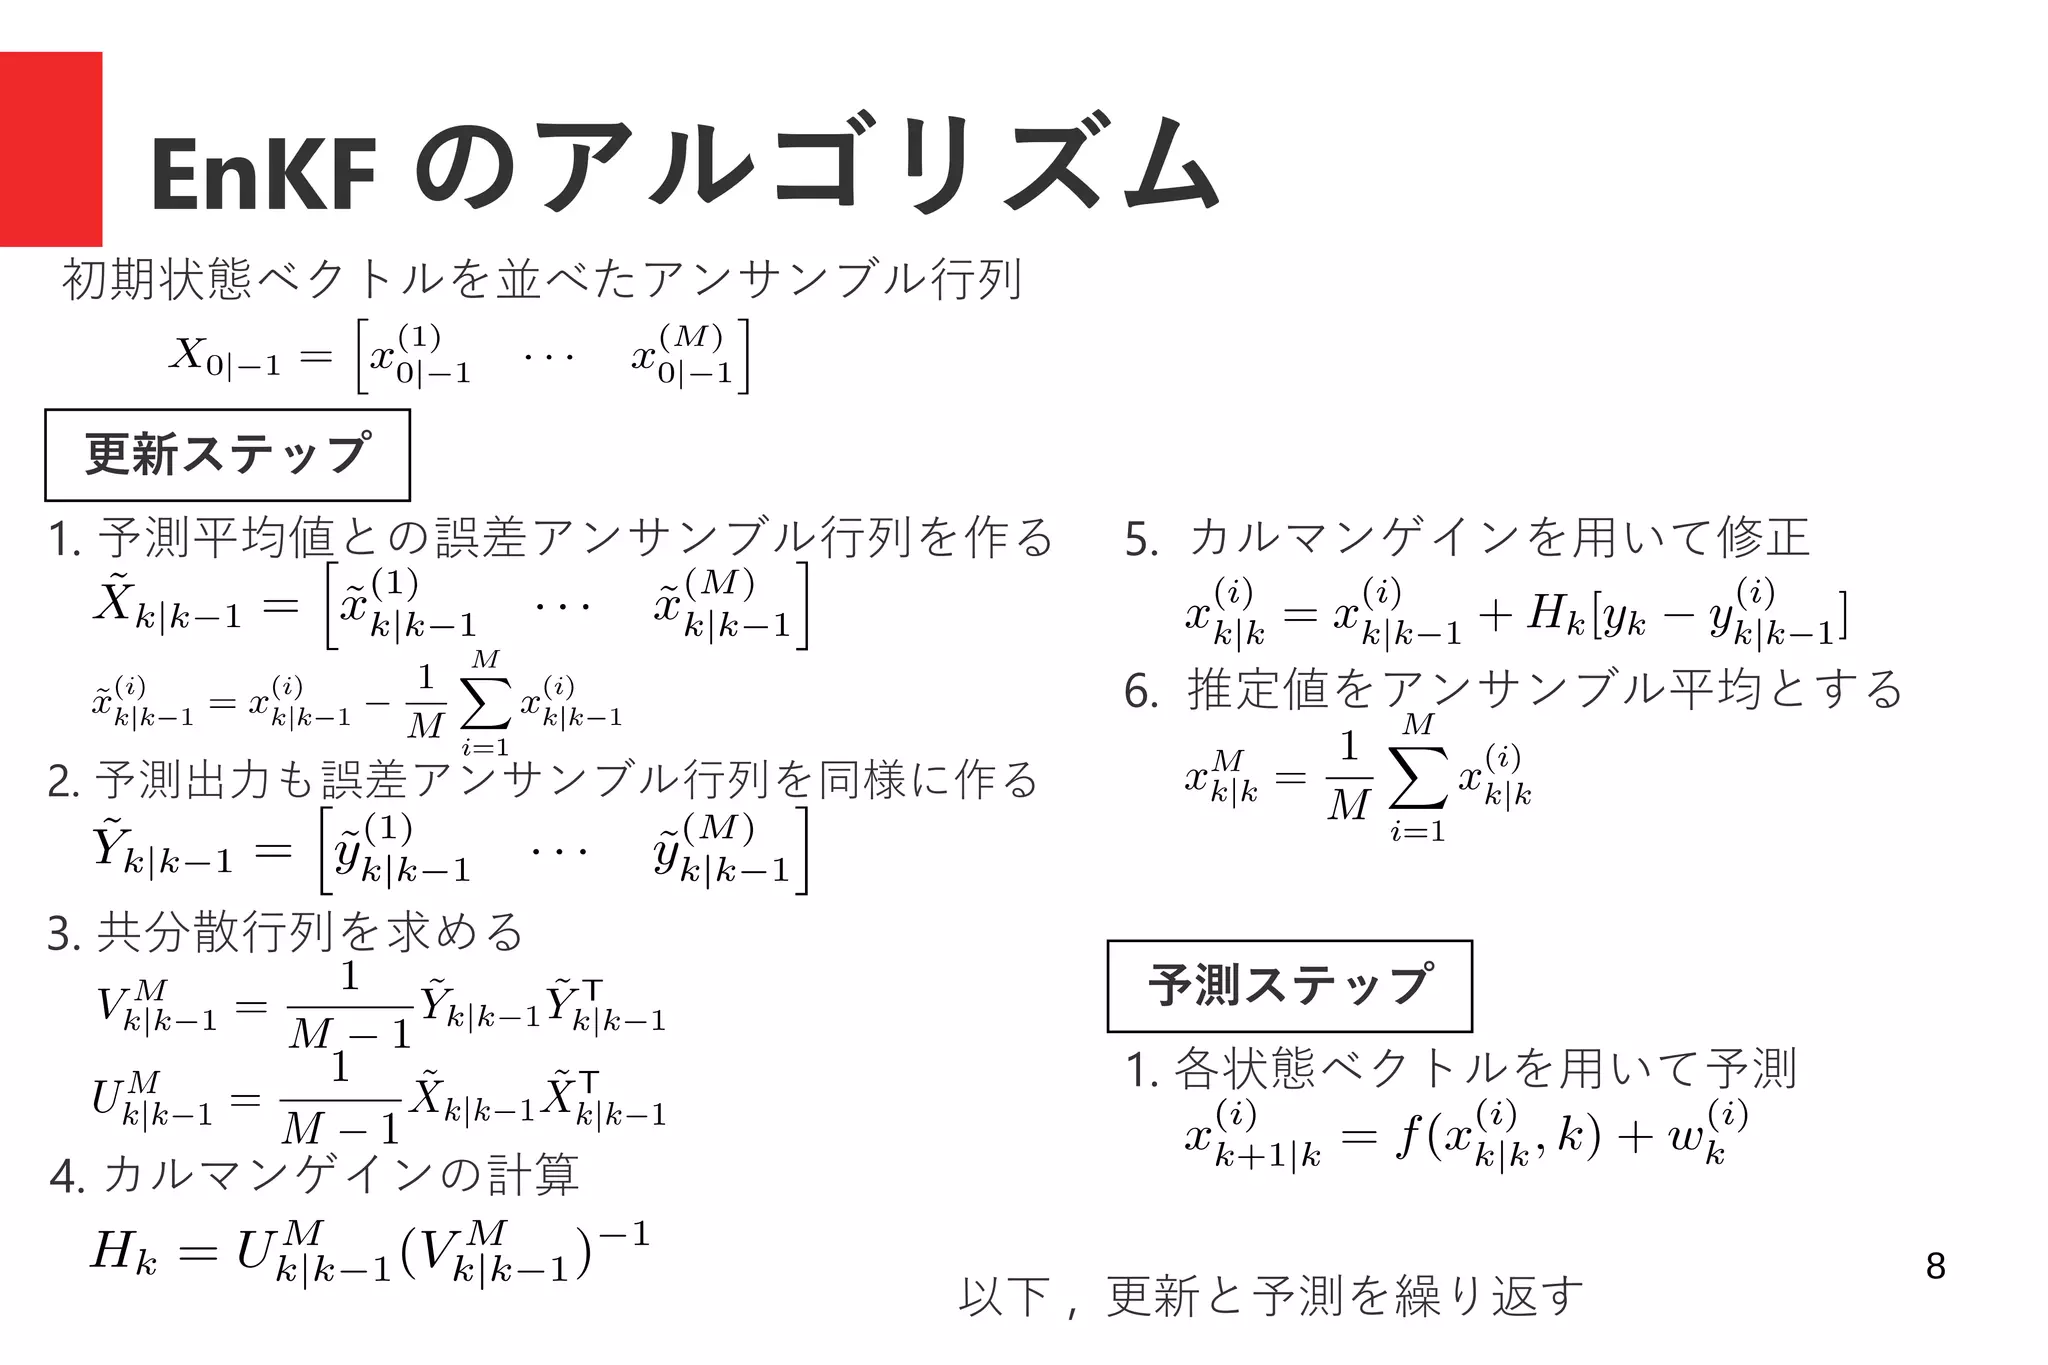 EnKF のアルゴリズム
初期状態ベクトルを並べたアンサンブル行列
$X_{0|-1} = \left[ x_{0|-1}^{(1)} \quad \cdots \quad x_{0|-1}^{(M)} \right]$
更新ステップ
1. 予測平均値との誤差アンサンブル行列を作る
$\tilde{X}_{k|k-1} = \left[ \tilde{x}_{k|k-1}^{(1)} \quad \cdots \quad \tilde{x}_{k|k-1}^{(M)} \right]$
$\tilde{x}_{k|k-1}^{(i)} = x_{k|k-1}^{(i)} - \frac{1}{M} \sum_{i=1}^{M} x_{k|k-1}^{(i)}$
2. 予測出力も誤差アンサンブル行列を同様に作る
$\tilde{Y}_{k|k-1} = \left[ \tilde{y}_{k|k-1}^{(1)} \quad \cdots \quad \tilde{y}_{k|k-1}^{(M)} \right]$
3. 共分散行列を求める
$V_{k|k-1}^{M} = \frac{1}{M-1} \tilde{Y}_{k|k-1} \tilde{Y}_{k|k-1}^{\mathsf{T}}$
$U_{k|k-1}^{M} = \frac{1}{M-1} \tilde{X}_{k|k-1} \tilde{X}_{k|k-1}^{\mathsf{T}}$
4. カルマンゲインの計算
$H_k = U_{k|k-1}^{M} (V_{k|k-1}^{M})^{-1}$
5. カルマンゲインを用いて修正
$x_{k|k}^{(i)} = x_{k|k-1}^{(i)} + H_k [y_k - y_{k|k-1}^{(i)}]$
6. 推定値をアンサンブル平均とする
$x_{k|k}^{M} = \frac{1}{M} \sum_{i=1}^{M} x_{k|k}^{(i)}$
予測ステップ
1. 各状態ベクトルを用いて予測
$x_{k+1|k}^{(i)} = f(x_{k|k}^{(i)}, k) + w_k^{(i)}$
以下 , 更新と予測を繰り返す
8